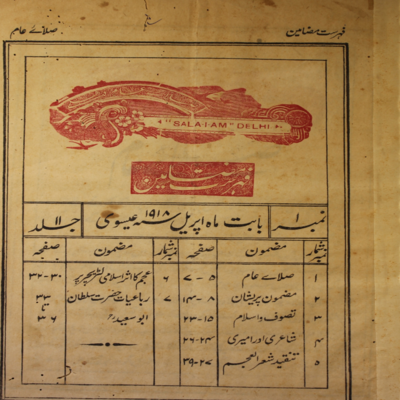 فہرست مضامین
صلائے عام
"SALA-I-AM" DELHI
فہرست مضامین
نمبر ۱ بابت ماہ اپریل سنہ ۱۹۱۸ عیسوی جلد ۱۱
نمبر شمار مضمون صفحہ نمبر شمار مضمون صفحہ
۱ صلائے عام ۵-۷ ۶ عجم کا اثر اسلامی لٹریچر پر ۳۰-۳۲
۲ مضمون پریشان ۸-۱۴ ۷ رباعیات حضرت سلطان ۳۳ تا
۳ تصوف و اسلام ۱۵-۲۳ ابو سعید ۳۶
۴ شاعری اور امیری ۲۴-۲۶
۵ تنقید شعر العجم ۲۷-۳۹